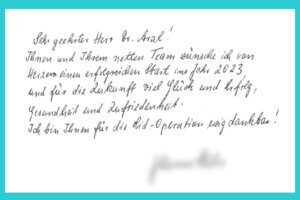 Sehr geehrter Herr Dr. Aral!
Ihnen und Ihrem netten Team wünsche ich von
Herzen einen erfolgreichen Start ins Jahr 2023
und für die Zukunft viel Glück und Erfolg,
Gesundheit und Zufriedenheit.
Ich bin Ihnen für die Lid-Operation ewig dankbar!